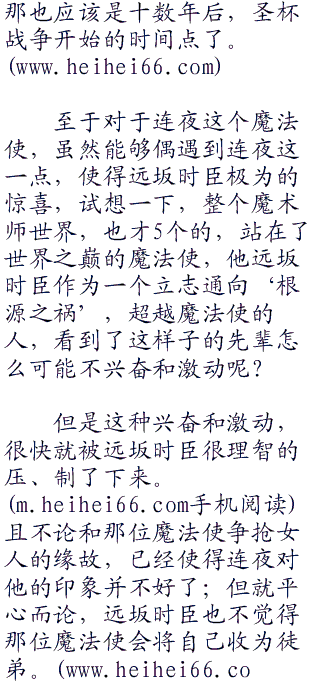 那也应该是十数年后，圣杯
战争开始的时间点了。
(www.heihei66.com)
至于对于连夜这个魔法
使，虽然能够偶遇到连夜这
一点，使得远坂时臣极为的
惊喜，试想一下，整个魔术
师世界，也才5个的，站在了
世界之巅的魔法使，他远坂
时臣作为一个立志通向‘根
源之祸’，超越魔法使的
人，看到了这样子的先辈怎
么可能不兴奋和激动呢？
但是这种兴奋和激动，
很快就被远坂时臣很理智的
压、制了下来。
(m.heihei66.com手机阅读)
且不论和那位魔法使争抢女
人的缘故，已经使得连夜对
他的印象并不好了；但就平
心而论，远坂时臣也不觉得
那位魔法使会将自己收为徒
弟。(www.heihei66.co